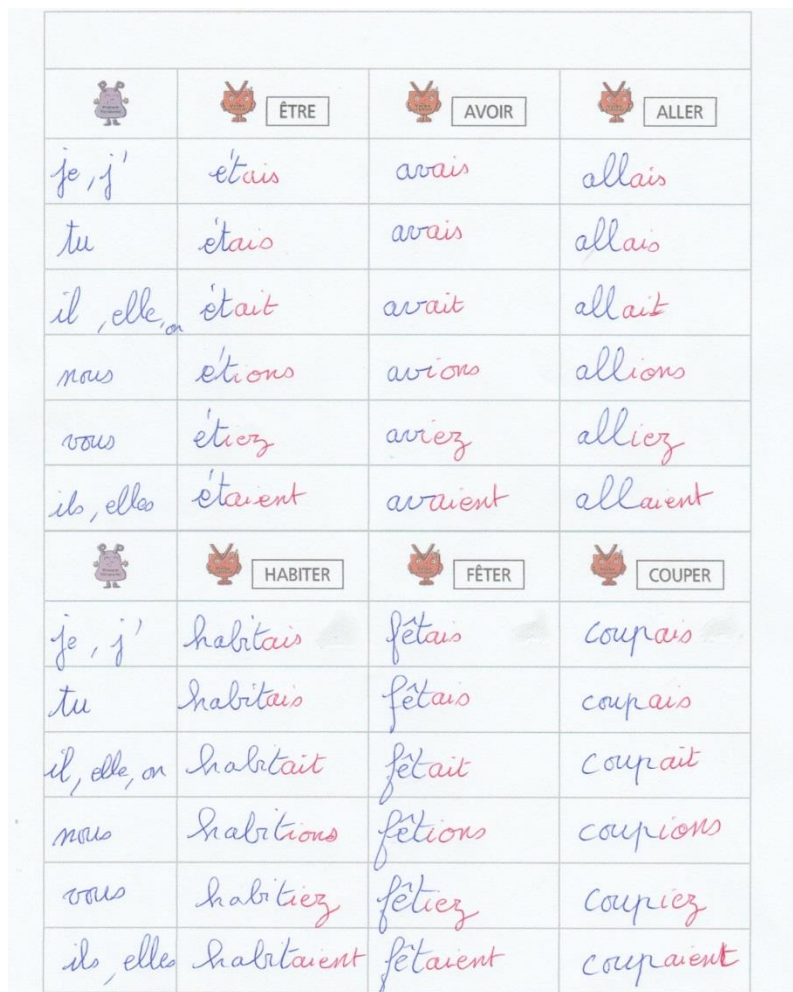 ÊTRE AVOIR ALLER
je, j' étais avais allais
tu étais avais allais
il, elle, on était avait allait
nous étions avions allions
vous étiez aviez alliez
ils, elles étaient avaient allaient
HABITER FÊTER COUPER
je, j' habitais fêtais coupais
tu habitais fêtais coupais
il, elle, on habitait fêtait coupait
nous habitions fêtions coupions
vous habitiez fêtiez coupiez
ils, elles habitaient fêtaient coupaient